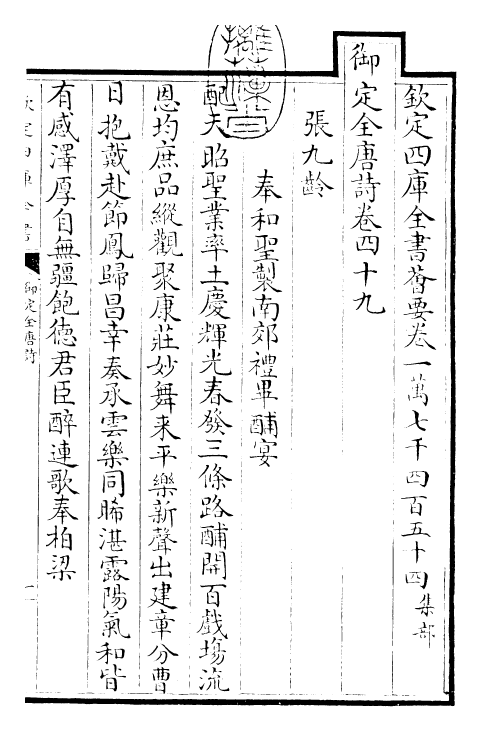 欽定四庫全書薈要卷一萬七千四百五十四集部
御定全唐詩卷四十九
張九齡
奉和聖製南郊禮畢酺宴
配天昭聖業率土慶輝光春發三條路酺開百戲塲流
恩均庶品縱觀聚康莊妙舞来平樂新聲出建章分曹
日抱戴赴節鳳歸昌幸奏承雲樂同晞湛露陽氣和皆
有感澤厚自無疆飽德君臣醉連歌奉柏梁
欽定四庫全書
御定全唐詩
一